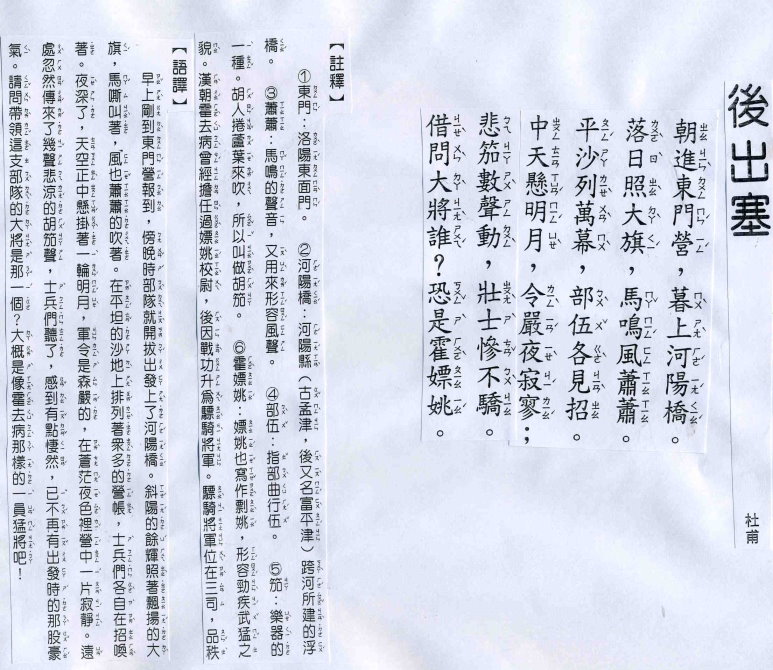 後出塞
杜甫
朝進東門營，暮上河陽橋。
落日照大旗，馬鳴風蕭蕭。
平沙列萬幕，部伍各見招。
中天懸明月，令嚴夜寂寥；
悲笳數聲動，壯士慘不驕。
借問大將誰？恐是霍嫖姚。
【註釋】
①東門：洛陽東面門。　②河陽橋：河陽縣（古孟津，後又名富平津）跨河所建的浮
橋。　③蕭蕭：馬鳴的聲音，又用來形容風聲。　④部伍：指部曲行伍。　⑤笳：樂器的
一種。胡人捲蘆葉來吹，所以叫做胡笳。　⑥霍嫖姚：嫖姚也寫作剽姚，形容勁疾武猛之
貌。漢朝霍去病曾經擔任過嫖姚校尉，後因戰功升為驃騎將軍。驃騎將軍位在三司，品秩
【語譯】
早上剛到東門營報到，傍晚時部隊就開拔出發上了河陽橋。斜陽的餘輝照著飄揚的大
旗，馬嘶叫著，風也蕭蕭的吹著。在平坦的沙地上排列著眾多的營帳，士兵們各自在招喚
著。夜深了，天空正中懸掛著一輪明月，軍令是森嚴的，在蒼茫夜色裡營中一片寂靜。遠
處忽然傳來了幾聲悲涼的胡笳聲，士兵們聽了，感到有點悽然，已不再有出發時的那股豪
氣。請問帶領這支部隊的大將是那一個？大概是像霍去病那樣的一員猛將吧！